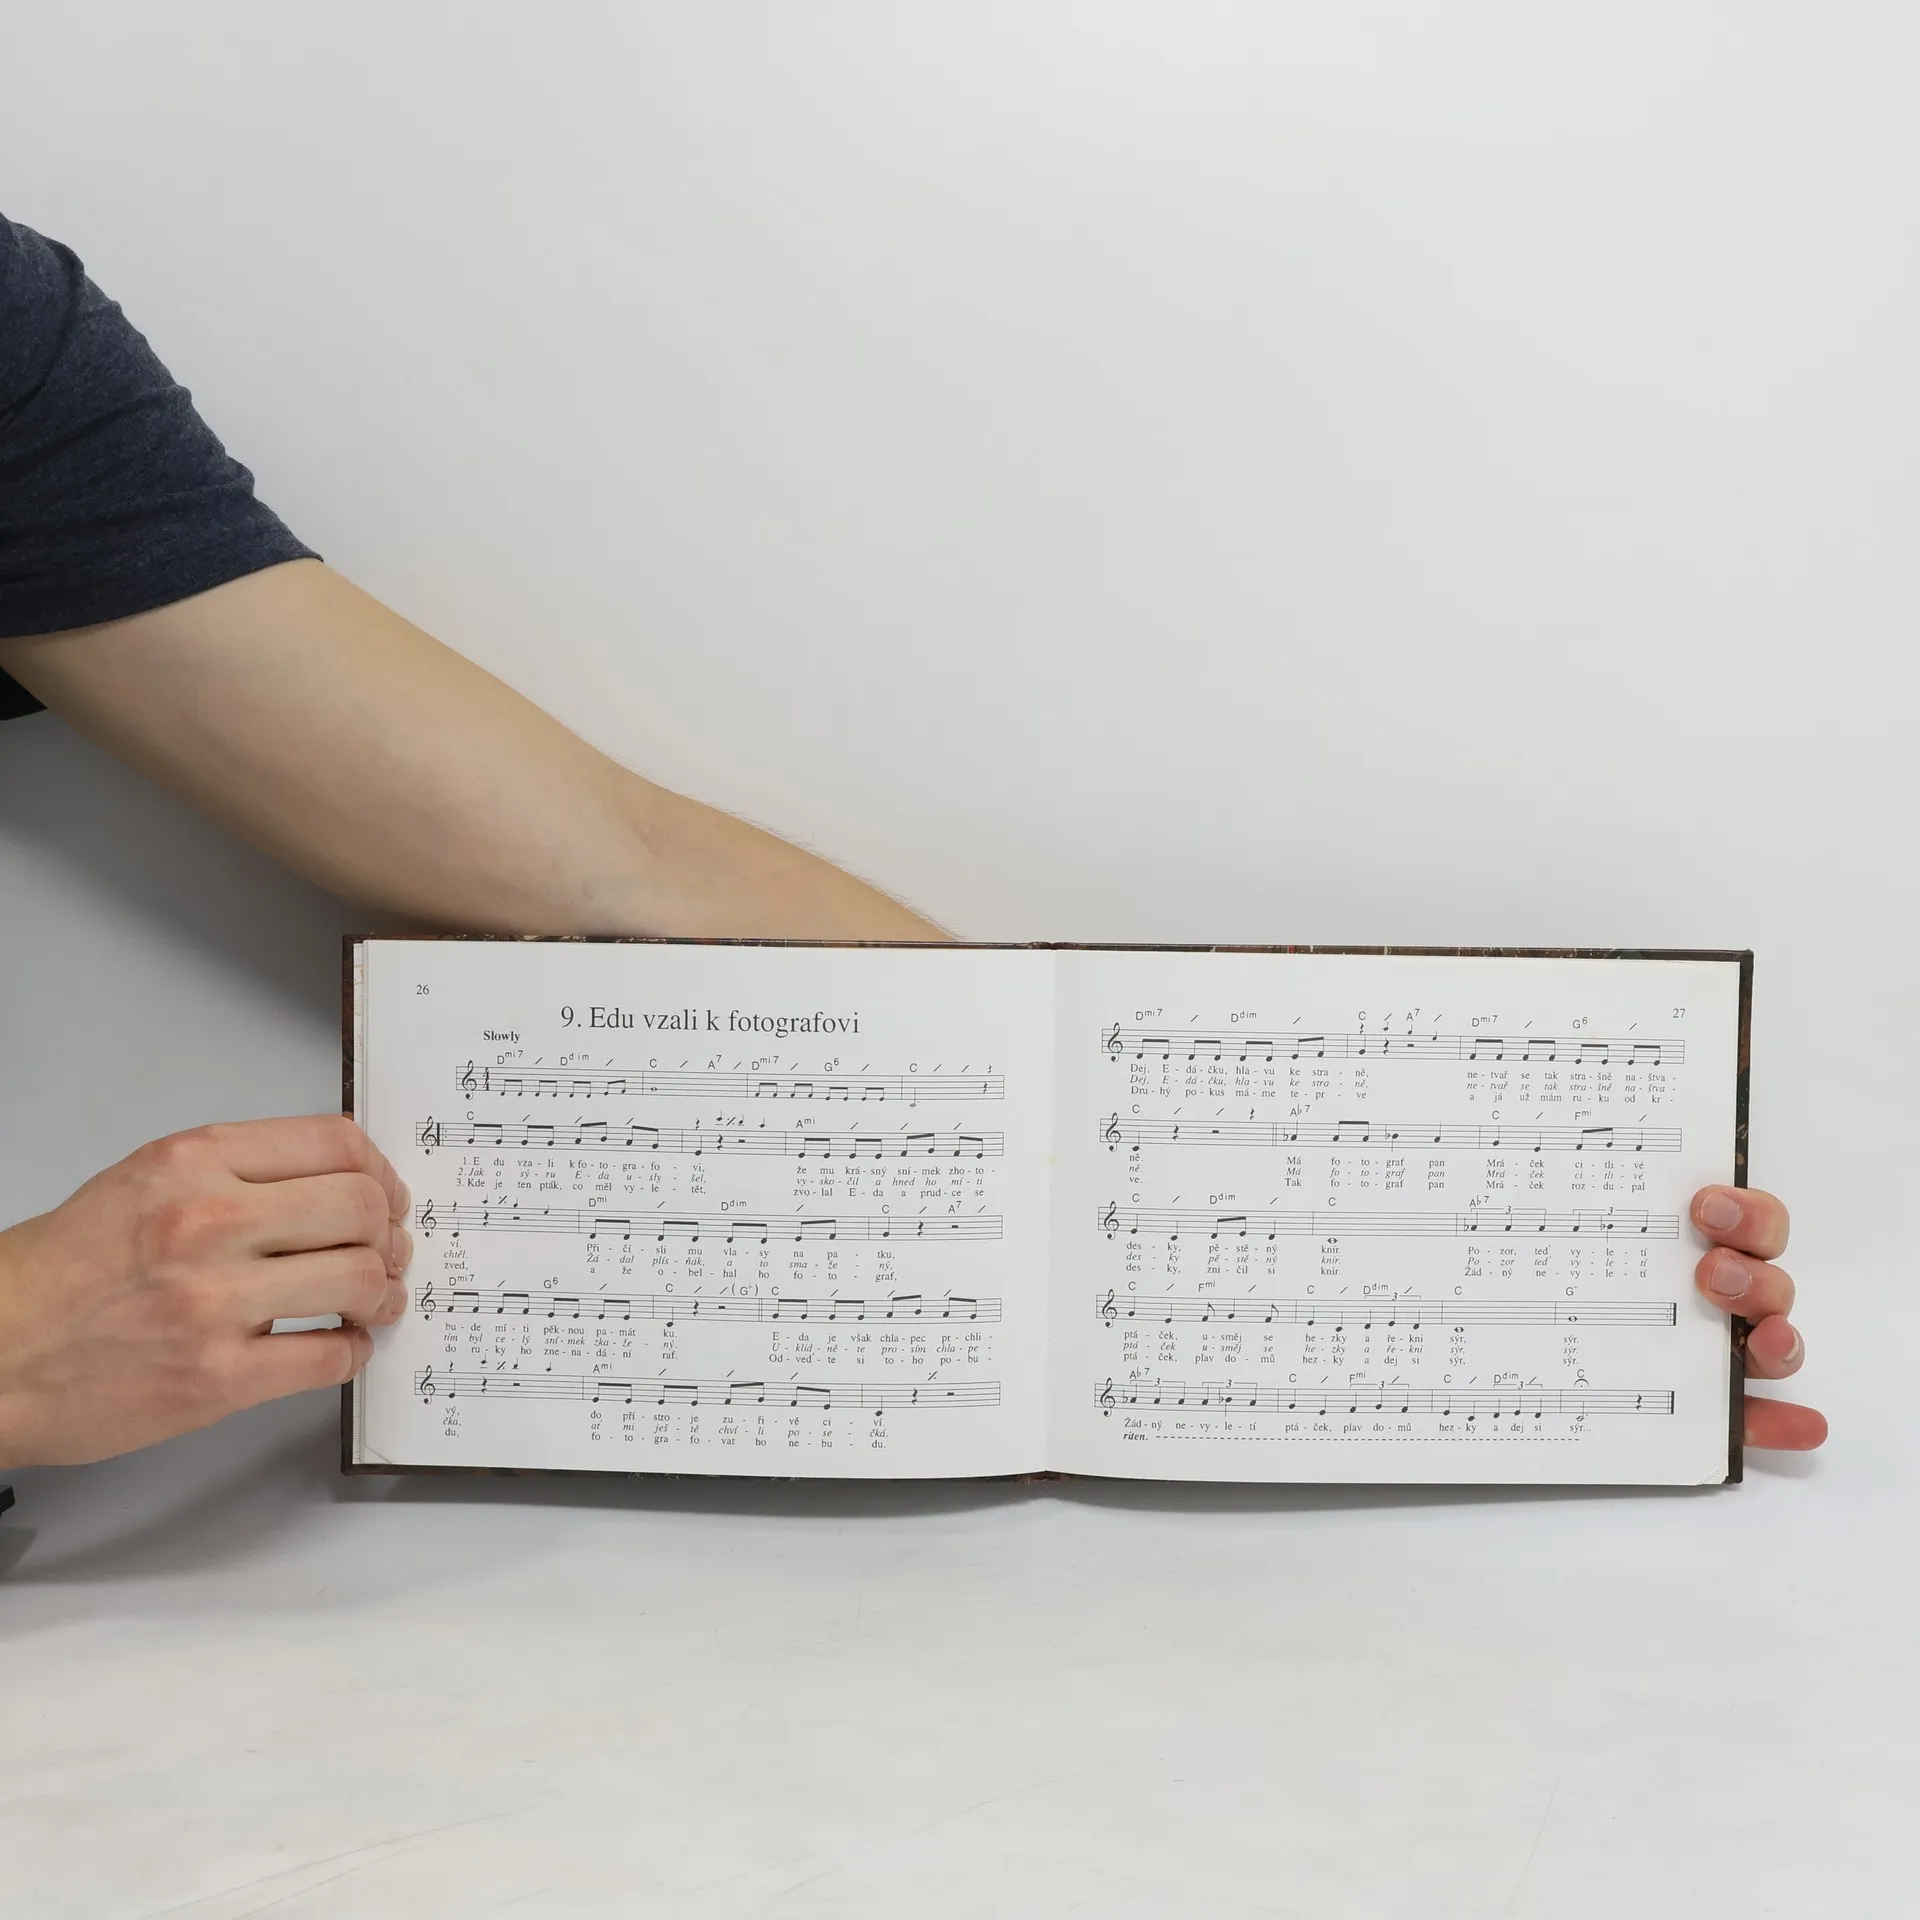 26
9. Edu vzali k fotografovi
Slowly
Dmi7 / Ddim / C / A7 / Dmi7 / G6 / C / /
C / / / Ami / / /
1. E du vza - li k fo - to - gra - fo - vi, že mu krá - sný sní - mek zho - to -
2. Jak o sý - ru E - da u - sly - šel, vy - sko - čil a hned ho mí - ti
3. Kde je ten pták, co měl vy - le - tět, zvo - lal E - da a prud - ce se
Dmi / Ddim / C / A7 /
ví. Při - čí - sli mu vla - sy na pa - tku,
chtěl. Žá - dal plís - ňák, a to sma - že - ný,
zved, a že o - bel - hal ho fo - to - graf,
Dmi7 / G6 / C / / (G+) C / / /
bu - de mí - ti pěk - nou pa - mát ku. E - da je však chla - pec pr - chli -
tím byl ce - lý sní - mek zka - že - ný. U - klid - ně - te pro - sím chla - pe -
do ru - ky ho zne - na - dá - ní raf. Od - veď - te si to - ho po - bu -
Ami / / /
vý, do pří - stro - je zu - ři - vě ci - ví.
čka, ať mi ješ - tě chví - li po - se - čká.
du, fo - to - gra - fo - vat ho ne - bu - du.
27
Dmi7 / Ddim / C / A7 / Dmi7 / G6 /
Dej, E - dá - čku, hla - vu ke stra - ně, ne - tvař se tak stra - šně na - štva -
Dej, E - dá - čku, hla - vu ke stra - ně, ne - tvař se tak stra - šně na - štva -
Dru - hý po - kus má - me te - pr - ve a já už mám ru - ku od kr -
C / / Ab7 C / Fmi /
ně. Má fo - to - graf pan Mrá - ček ci - tli - vé
ně. Má fo - to - graf pan Mrá - ček ci - tli - vé
ve. Tak fo - to - graf pan Mrá - ček roz - du - pal
C / Ddim / C Ab7 3 3
des - ky, pě - stě - ný knír. Po - zor, teď vy - le - tí
des - ky pě - stě - ný knír. Po - zor teď vy - le - tí
des - ky, zni - čil si knír. Žád - ný ne - vy - le - tí
C / Fmi / C / Ddim 3 / C G+
ptá - ček, u - směj se he - zky a ře - kni sýr, sýr.
ptá - ček u - směj se he - zky a ře - kni sýr, sýr.
ptá - ček, plav do - mů hez - ky a dej si sýr, sýr.
Ab7 3 3 C / Fmi 3 / C / Ddim 3 / C
Žád - ný ne - vy - le - tí ptá - ček, plav do - mů hez - ky a dej si sýr...
riten.